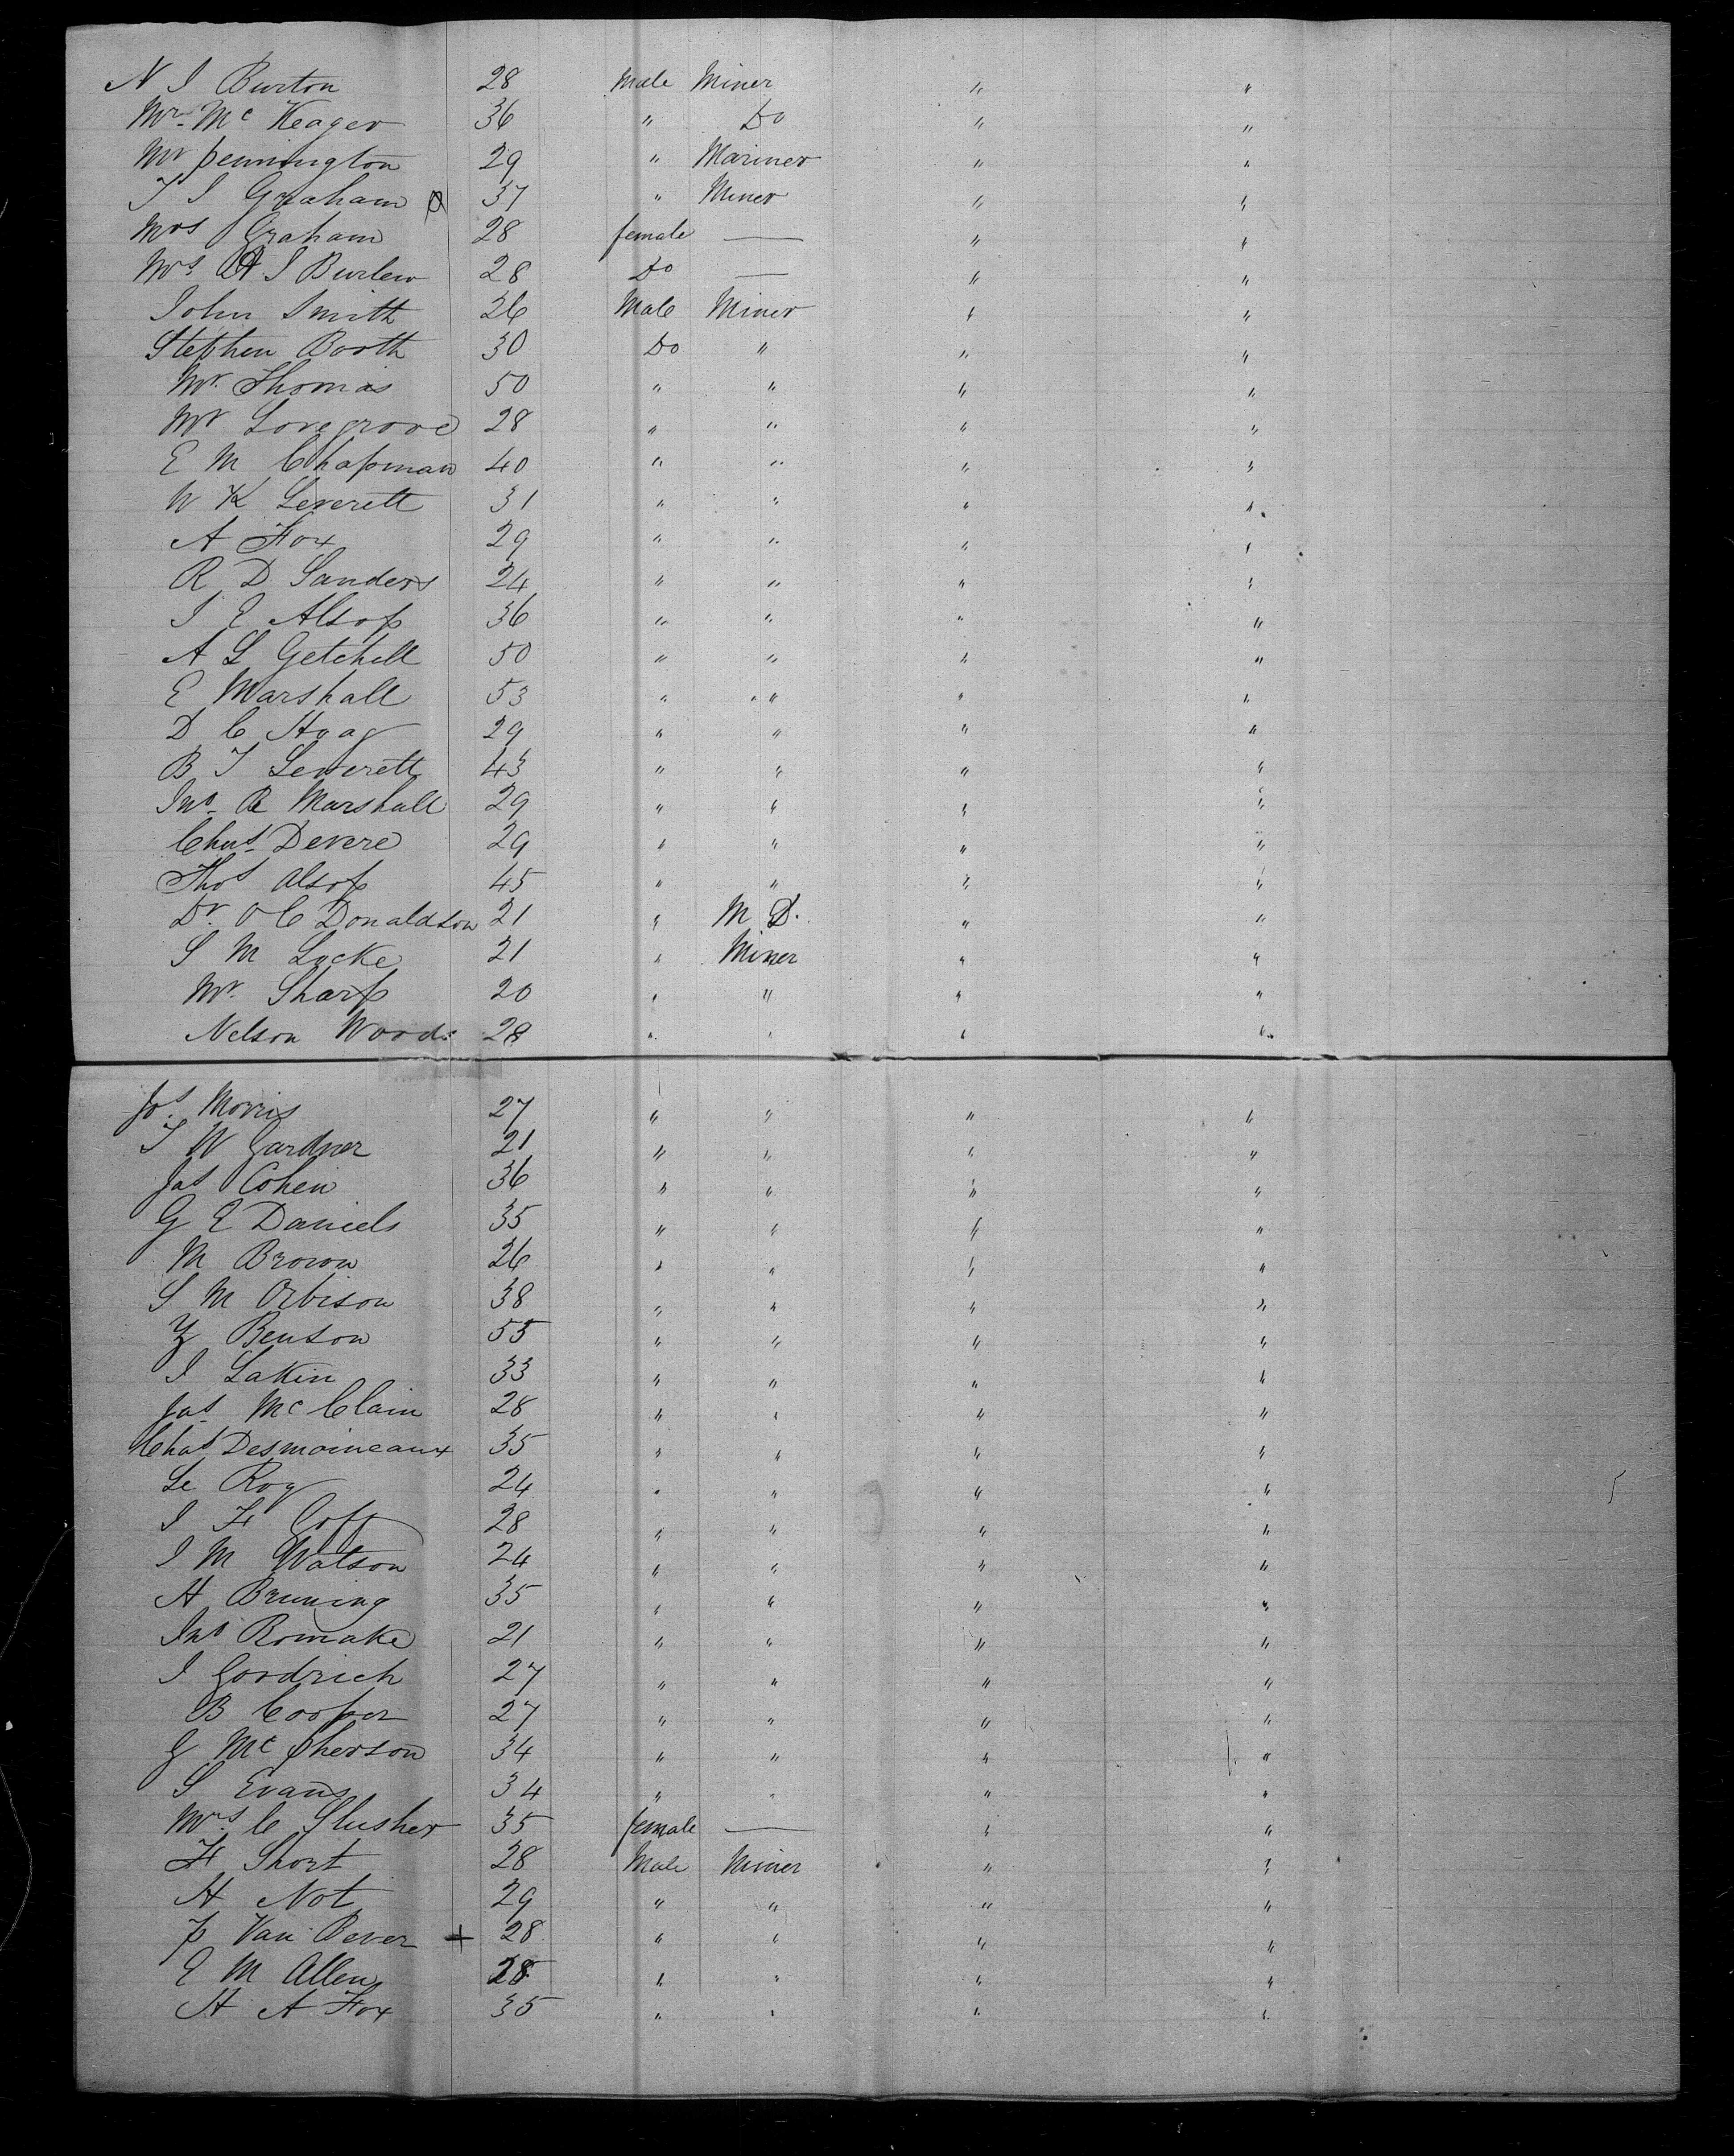 N J Burton 28 Male Miner " "
Mr. Mc Keager 36 " Do " "
Mr Pennington 29 " Mariner " "
T J Graham 37 " Miner " "
Mrs Graham 28 female — " "
Mrs A J Burlew 28 Do — " "
John Smith 26 Male Miner " "
Stephen Booth 30 Do " " "
Mr. Thomas 50 " " " "
Mr Lovegrove 28 " " " "
E M Chapman 40 " " " "
W K Leverett 31 " " " "
A Fox 29 " " " "
R D Sanders 24 " " " "
J E Alsop 36 " " " "
A L Getchell 50 " " " "
E Marshall 53 " " " "
D C Hoag 29 " " " "
B T Leverett 43 " " " "
Jno. R Marshall 29 " " " "
Chas. Devere 29 " " " "
Thos Alsop 45 " " " "
Dr. O C Donaldson 21 " M D. " "
S M Locke 21 " Miner " "
Mr. Sharp 20 " " " "
Nelson Woods 28 " " " "
Jos. Morris 27 " " " "
T W Gardner 21 " " " "
Jas Cohen 36 " " " "
G E Daniels 35 " " " "
M Brown 26 " " " "
S M Orbison 38 " " " "
Z Benson 55 " " " "
J Lakin 33 " " " "
Jas. Mc Clain 28 " " " "
Chas Desmoineaux 35 " " " "
Le Roy 24 " " " "
J H Goff 28 " " " "
J M Watson 24 " " " "
H Bruning 35 " " " "
Jno Romake 21 " " " "
J Goodrich 27 " " " "
B Cooper 27 " " " "
G Mc Pherson 34 " " " "
S Evans 34 " " " "
Mrs. C Slusher 35 female — " "
F Short 28 Male Miner " "
H Not 29 " " " "
P Van Bever + 28 " " " "
E M Allen 28 " " " "
H A Fox 35 " " " "